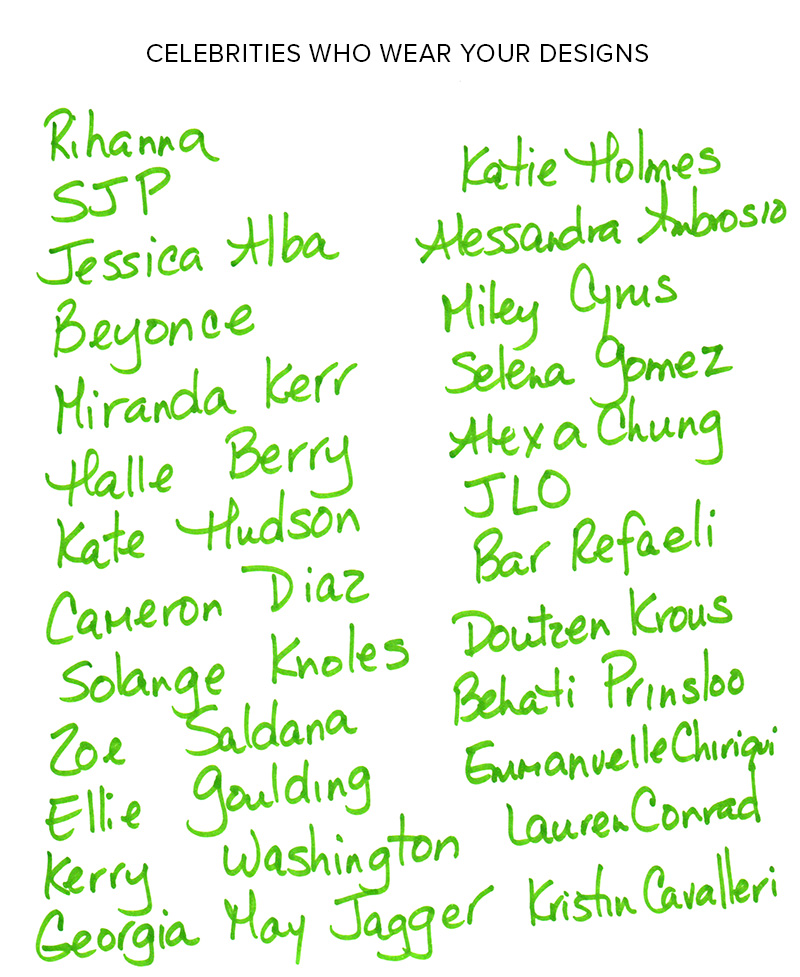 CELEBRITIES WHO WEAR YOUR DESIGNS
Rihanna
SJP
Jessica Alba
Beyonce
Miranda Kerr
Halle Berry
Kate Hudson
Cameron Diaz
Solange Knoles
Zoe Saldana
Ellie Goulding
Kerry Washington
Georgia May Jagger
Katie Holmes
Alessandra Ambrosio
Miley Cyrus
Selena Gomez
Alexa Chung
JLO
Bar Refaeli
Doutzen Krous
Behati Prinsloo
Emmanuelle Chiriqui
Lauren Conrad
Kristin Cavalleri